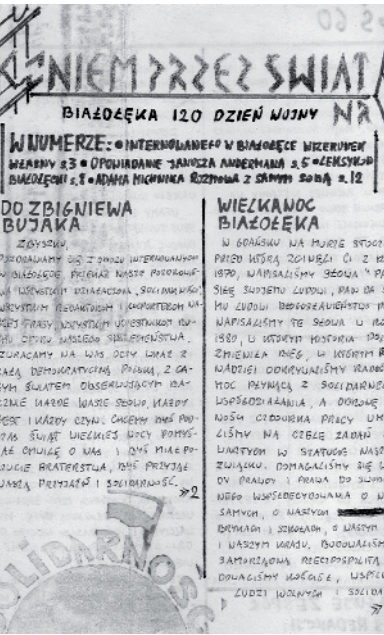 NIEM PRZEZ ŚWIAT
BIAŁOŁĘKA 120 DZIEŃ WOJNY
NR
W NUMERZE: • INTERNOWANEGO W BIAŁOŁĘCE WIZERUNEK
WŁASNY s.3 • OPOWIADANIE JANUSZA ANDERMANA s.5 • LEKSYKON
BIAŁOŁĘCKI s.8 • ADAMA MICHNIKA ROZMOWA Z SAMYM SOBĄ s.12
DO ZBIGNIEWA
BUJAKA
ZBYSZKU,
POZDRAWIAMY CIĘ Z OBOZU INTERNOWANYCH
W BIAŁOŁĘCE, PRZEKAŻ NASZE POZDROWIE-
WSZYSTKIM DZIAŁACZOM „SOLIDARNOŚCI”,
WSZYSTKIM REDAKTOROM I KOLPORTEROM NA-
SZEJ PRASY, WSZYSTKIM UCZESTNIKOM RU-
CHU OPORU NASZEGO SPOŁECZEŃSTWA.
ZWRACAMY NA WAS OCZY WRAZ Z
CAŁĄ DEMOKRATYCZNĄ POLSKĄ, Z CA-
ŁYM ŚWIATEM OBSERWUJĄCYM BA-
CZNIE KAŻDE WASZE SŁOWO, KAŻDY
GEST I KAŻDY CZYN. CHCEMY BYŚ POD-
CZAS ŚWIĄT WIELKIEJ NOCY POMYŚ-
LAŁ CHWILĘ O NAS I BYŚ MIAŁ PO-
CZUCIE BRATERSTWA, BYŚ PRZYJĄŁ
NASZĄ PRZYJAŹŃ I SOLIDARNOŚĆ.
»2
SOLIDARNOŚĆ
WIELKANOC
BIAŁOŁĘKA
W GDAŃSKU NA MURZE STOCZ
PRZED KTÓRĄ ZGINĘLI CI Z
1970, NAPISALIŚMY SŁOWA "PA
SIŁĘ SWOJEMU LUDOWI, PAN DA S
MU LUDOWI BŁOGOSŁAWIEŃSTWO
NAPISALIŚMY TE SŁOWA W RO
1980, W KTÓRYM HISTORIA
ZMIENIŁA BIEG, W KTÓRYM
NADZIEI ODKRYWALIŚMY RADOŚ
MOC PŁYNĄCĄ Z SOLIDARNE
WSPÓŁDZIAŁANIA, A OBRONĘ
NOŚCI CZŁOWIEKA PRACY UM
LIŚMY NA CZELE ZADAŃ
WARTYCH W STATUCIE NASZ
ZWIĄZKU. DOMAGALIŚMY SIĘ
PRAWDY I PRAWA DO SWOBO
NEGO WSPÓŁDECYDOWANIA O
SAMYCH, O NASZYCH
BRYKACH I SZKOŁACH, O NASZYM
I NASZYM KRAJU. BUDOWALIŚM
SAMORZĄDNĄ RZECZPOSPOLITĄ
KOŚCIÓŁ, WSPÓL
LUDZI WOLNYCH I SOLIDA
»